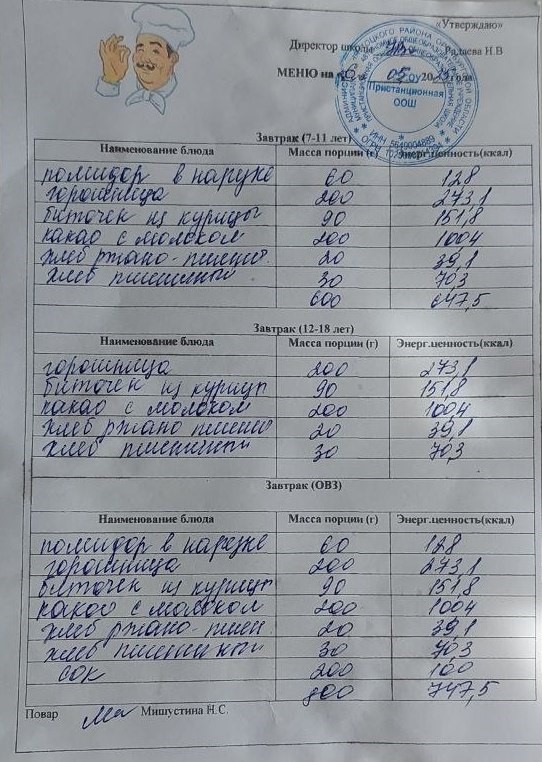 «Утверждаю»
Директор школы Радаева Н.В
МЕНЮ на «6» 05 2025 года
Пристанционная
ООШ
Завтрак (7-11 лет)
Наименование блюда Масса порции (г) Энерг.ценность(ккал)
помидор в нарезке 60 128
горошница 200 273,1
биточек из курицы 90 151,8
какао с молоком 200 1004
хлеб ржано-пшенич. 20 39,1
хлеб пшеничный 30 70,3
600 647,5
Завтрак (12-18 лет)
Наименование блюда Масса порции (г) Энерг.ценность(ккал)
горошница 200 273,1
биточек из курицы 90 151,8
какао с молоком 200 1004
хлеб ржано пшенич 20 39,1
хлеб пшеничный 30 70,3
Завтрак (ОВЗ)
Наименование блюда Масса порции (г) Энерг.ценность(ккал)
помидор в нарезке 60 128
горошница 200 273,1
биточек из курицы 90 151,8
какао с молоком 200 1004
хлеб ржано-пшен. 20 39,1
хлеб пшеничный 30 70,3
сок 200 100
800 747,5
Повар Мишустина Н.С.